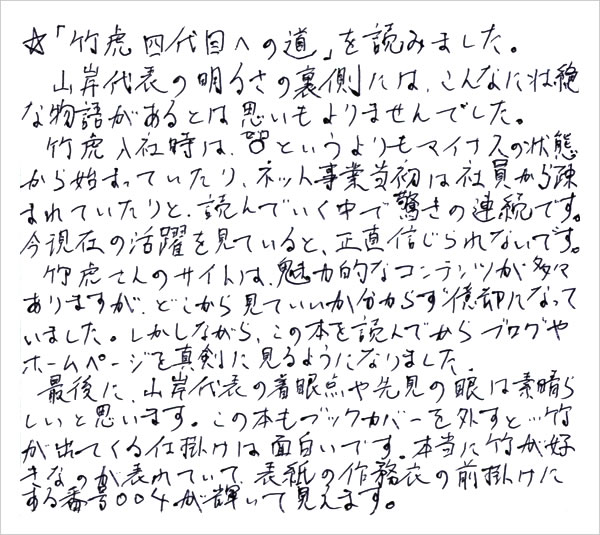 ☆「竹虎四代目への道」を読みました。
山岸代表の明るさの裏側には、こんなに壮絶
な物語があるとは思いもよりませんでした。
竹虎入社時は、ゼロというよりもマイナスの状態
から始まっていたり、ネット事業当初は社員から疎
まれていたりと、読んでいく中で驚きの連続です。
今現在の活躍を見ていると、正直信じられないです。
竹虎さんのサイトは、魅力的なコンテンツが多々
ありますが、どこから見ていいか分からず億却になって
いました。しかしながら、この本を読んでからブログや
ホームページを真剣に見るようになりました。
最後に、山岸代表の着眼点や先見の眼は素晴ら
しいと思います。この本もブックカバーを外すと…竹
が出てくる仕掛けは面白いです。本当に竹が好
きなのが表れていて、表紙の作務衣の前掛けに
する番号004が輝いて見えます。